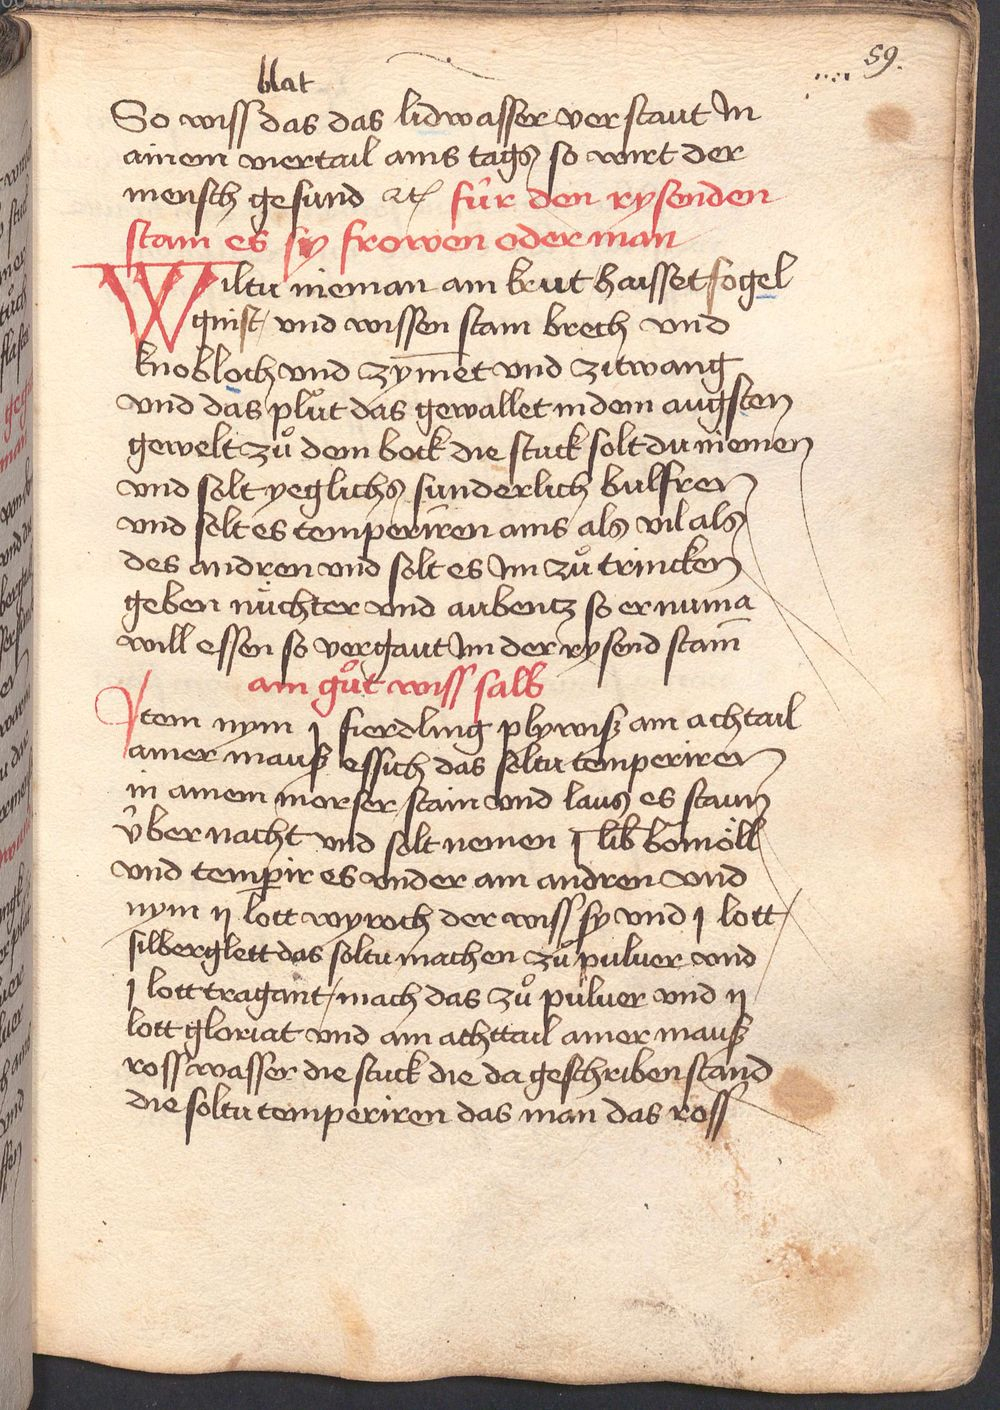 59.
blat
So wiss das das lidwasser verstaut In
ainem viertail ains tags so wirt der
mensch gesund etc fúr den rysenden
stain es sy frowen oder man
Wiltu nieman ain krut haisset fogel
gnist / vnd wissen stain brech vnd
knobloch vnd zym̄et vnd zitwang
vnd das plůt das gewallet in dem augsten
gewelt zů dem bock die stuck solt du niemen
vnd solt yeglichs sunderlich bulfren
vnd solt es temperiren ains als vil als
des andren vnd solt es Im zů trincken
geben nüchter vnd aubentz so er numa
will essen so vergaut Im der rysend stain
ain gůt wiss salb
Item nym j fierdling plywiß ain achtail
ainer mauß essich das soltu temperiren
in ainem morser stain vnd laus es staun
v́ber nacht vnd solt nemen j lib bomöll
vnd temperir es vnder ain andren vnd
nym ij lott wyroch der wiss sy vnd j lott
silberglett das soltu machen zů puluer vnd
j lott tragant / mach das zů puluer vnd ij
lott gloriat vnd ain achttail ainer mauß
rosswasser die stuck die da geschriben stand
die soltu temperiren das man das ross